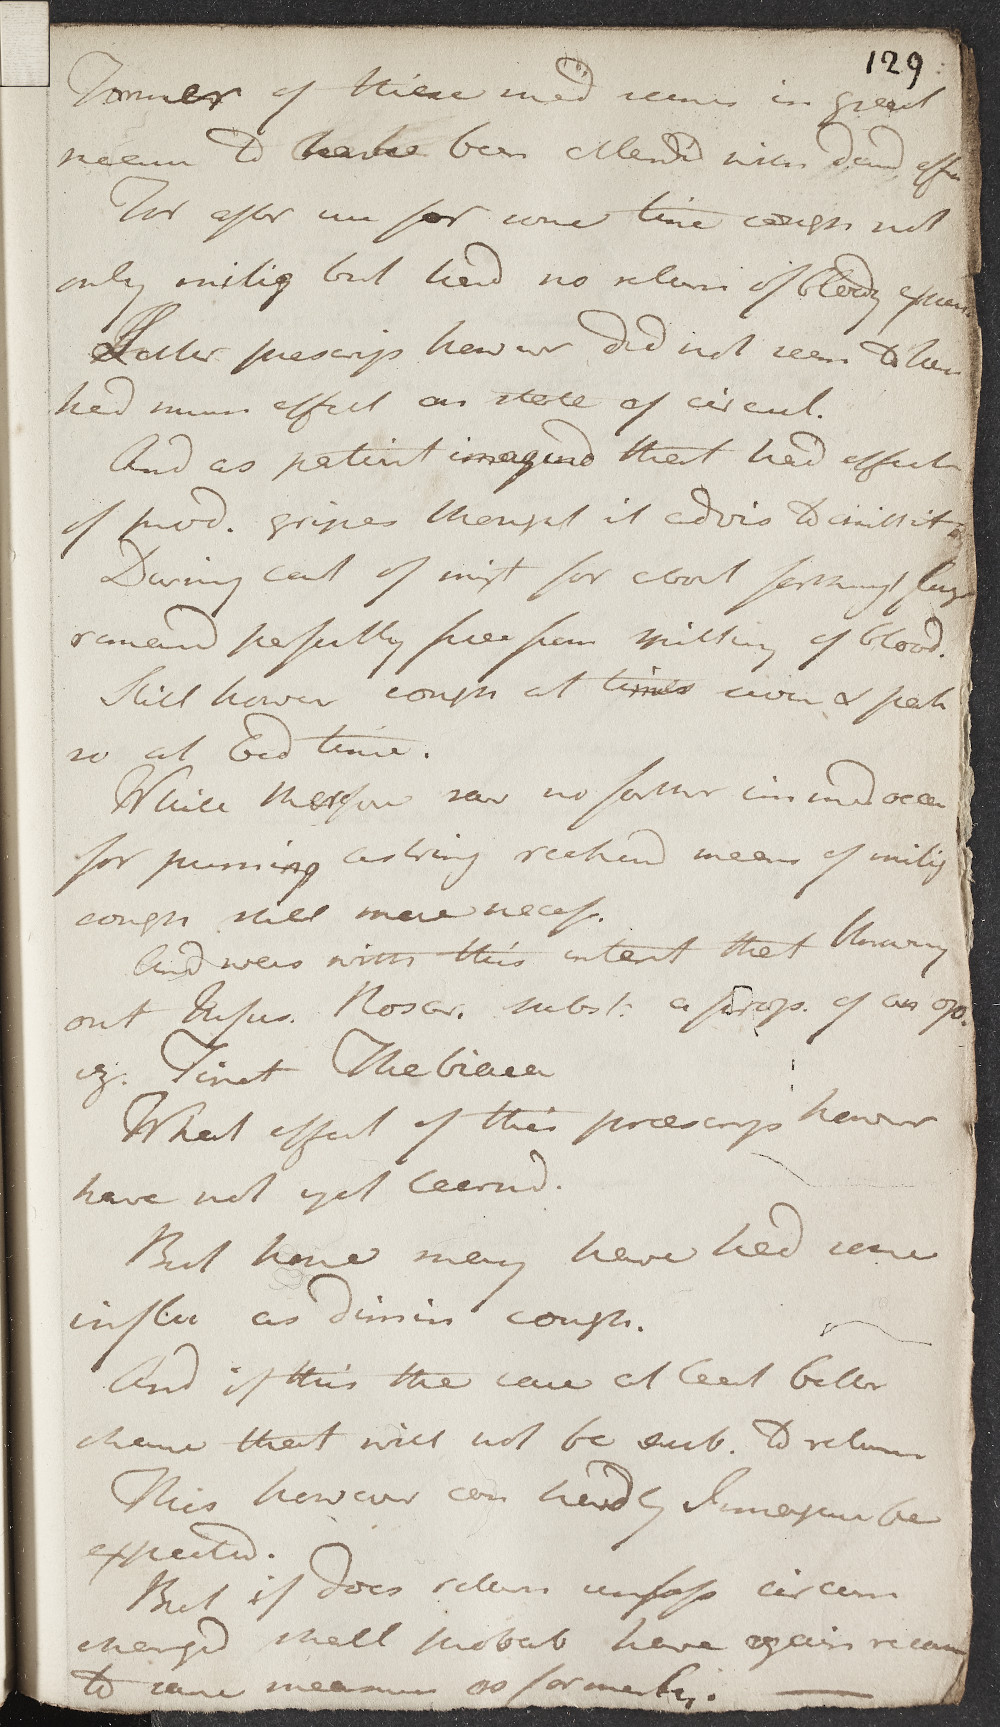 129
Former of these med seems in great
measu to have been attend with desird effec
For after use for some time cough not
only mitig but had no return of bloody expec
Latter prescrip howevr did not seem to have
had much effect on state of circul.
And as patient imagind that had effect
of prod. gripes thought it advis to omitt it
During cont of mixt for about fortnight
remaind perfectly free from spitting of blood.
Still howevr cough at times even &
so at Bed time.
While therefore saw no farther immed occa
for pursuing astring reckond means of mitig
cough still more necess.
And was with this intent that throwing
out Infus. Rosar. subst. a prep. of an opi.
vz. Tinct Thebiaca
What effect of this prescrip howevr
have not yet learnd.
But hope may have had some
influ as dimin cough.
And if this the case at least better
chance that will not be sub. to return
This however can hardly I imagine be
expected.
But if does return unless circum
changd shall probab have again recou
to same measures as formerly.